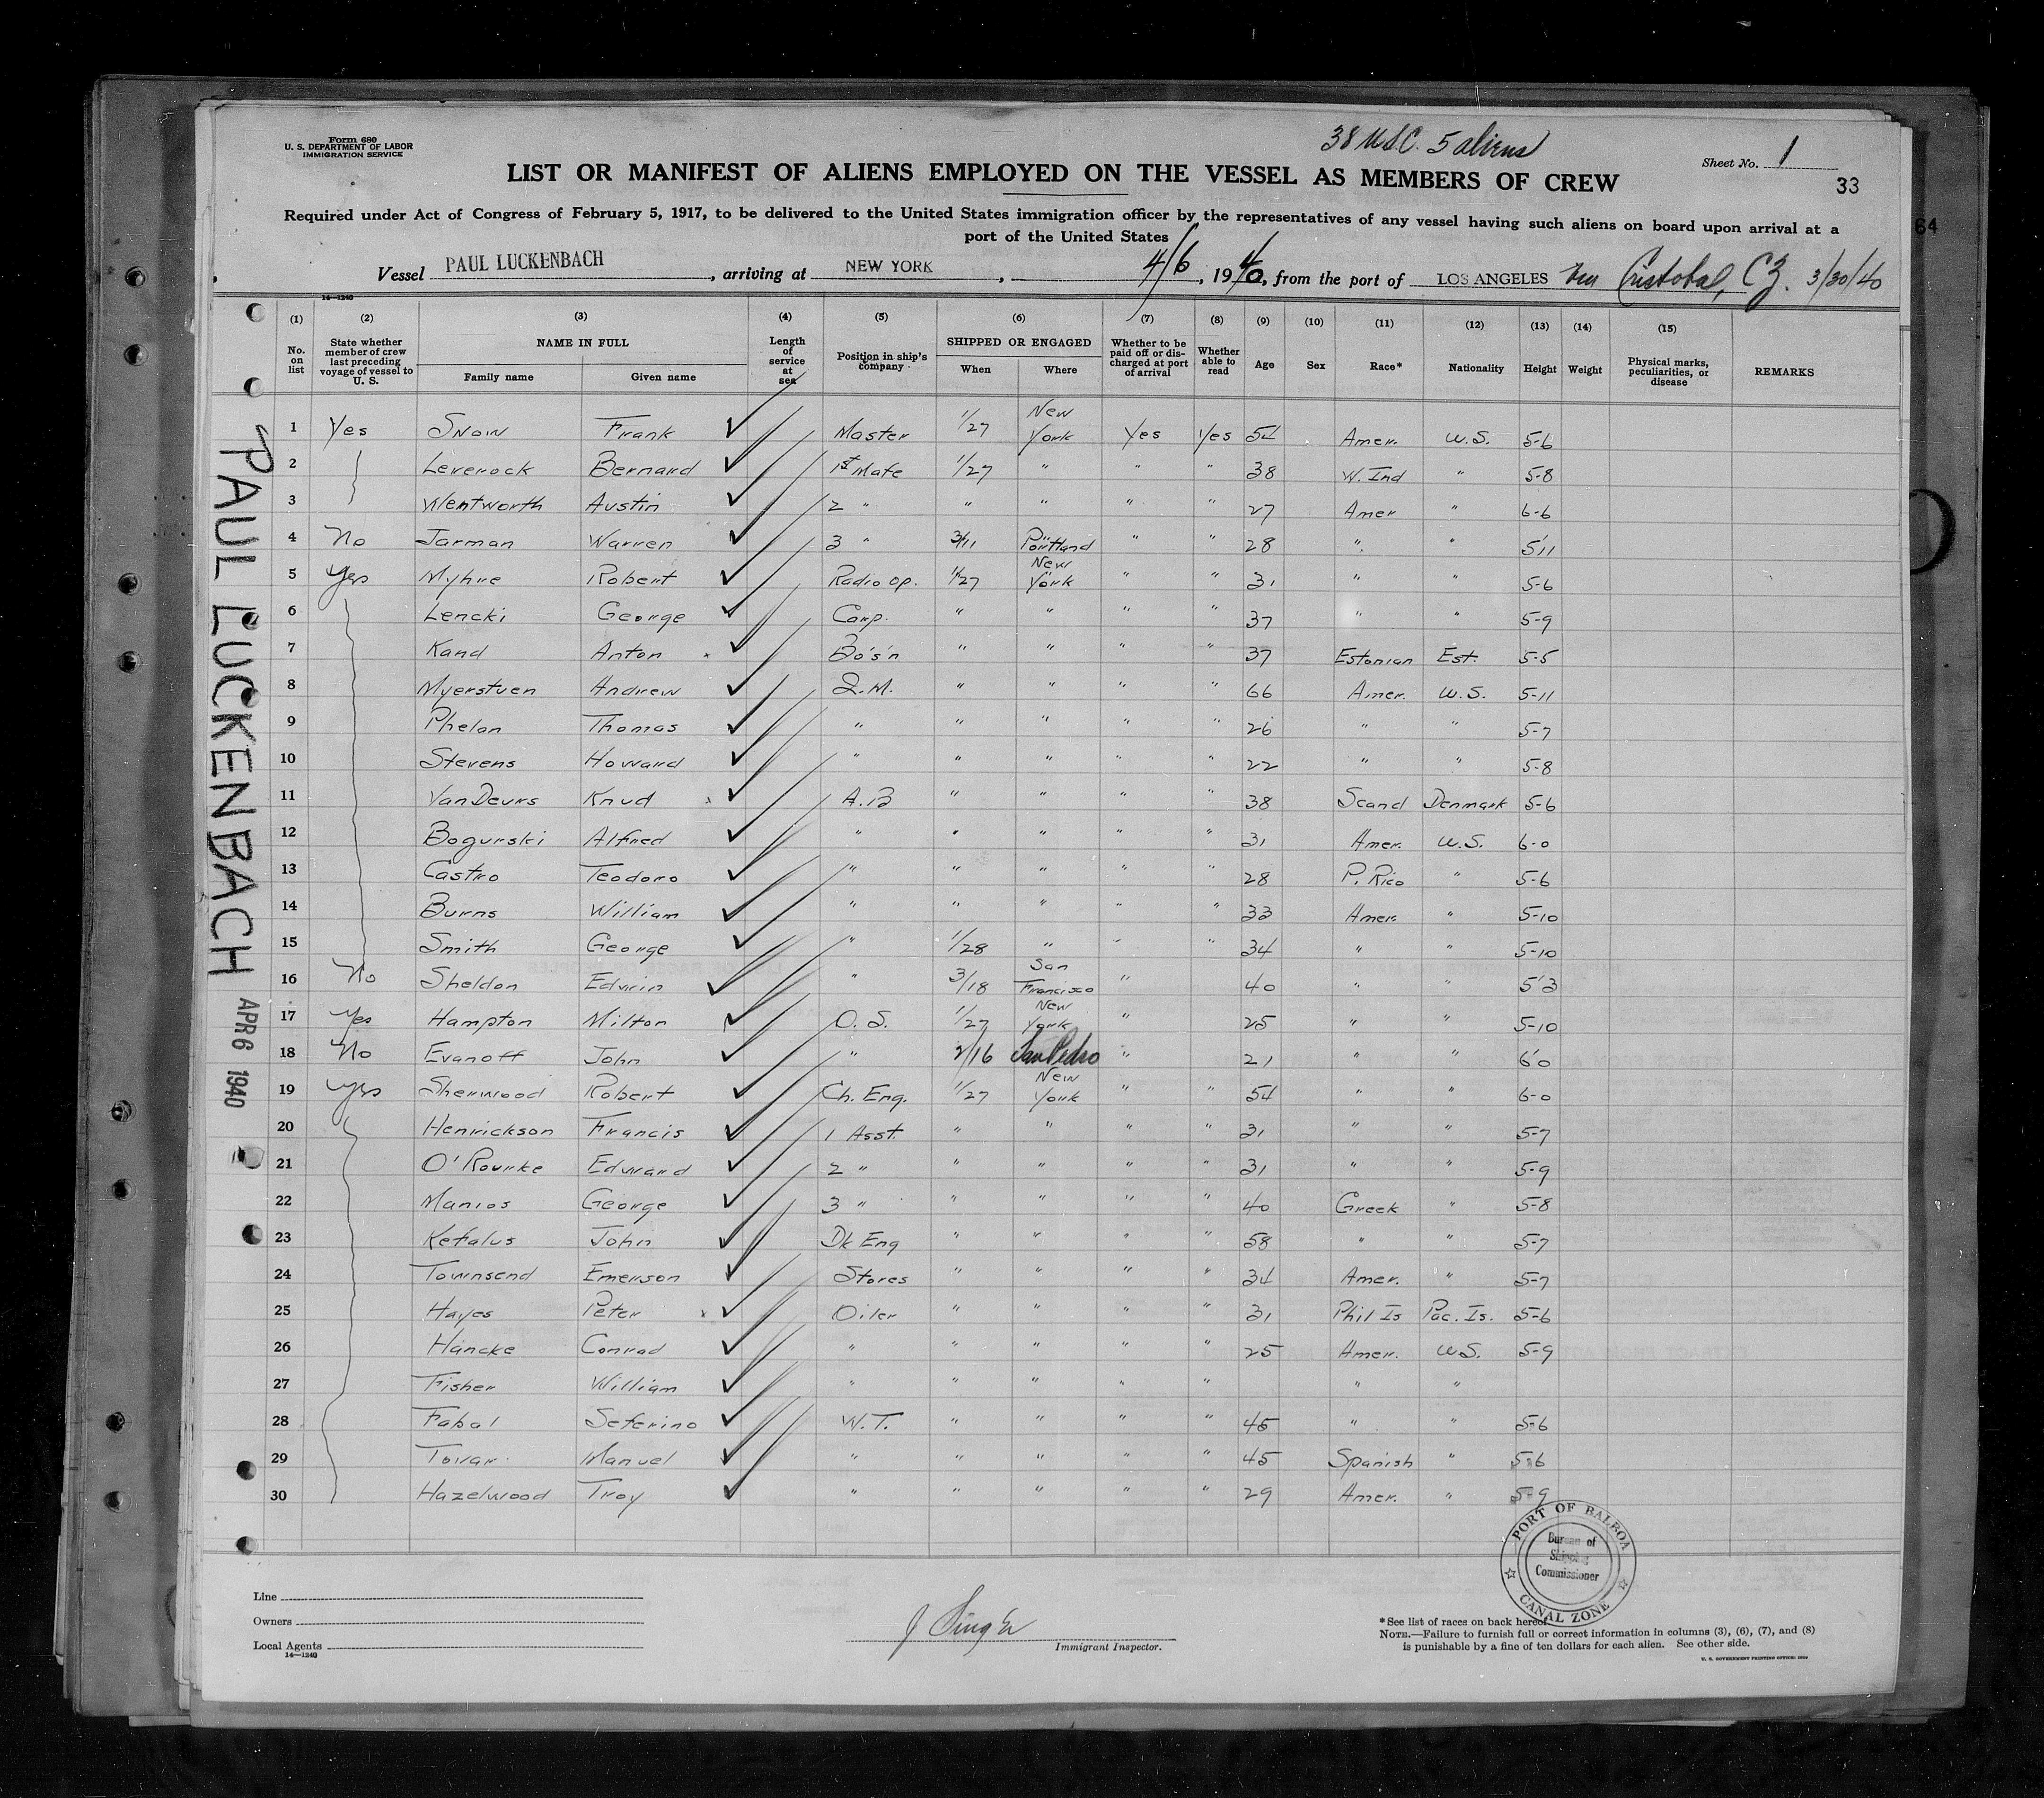 Form 680
U. S. DEPARTMENT OF LABOR
IMMIGRATION SERVICE
38 U.S.C. 5 aliens
Sheet No. 1
33
64
LIST OR MANIFEST OF ALIENS EMPLOYED ON THE VESSEL AS MEMBERS OF CREW
Required under Act of Congress of February 5, 1917, to be delivered to the United States immigration officer by the representatives of any vessel having such aliens on board upon arrival at a
port of the United States
Vessel PAUL LUCKENBACH, arriving at NEW YORK, 4/6, 1940, from the port of LOS ANGELES via Cristobal, CZ 3/30/40
14—1240
(1) (2) (3) (4) (5) (6) (7) (8) (9) (10) (11) (12) (13) (14) (15)
No. on list State whether member of crew last preceding voyage of vessel to U. S. NAME IN FULL Family name Given name Length of service at sea Position in ship's company SHIPPED OR ENGAGED When Where Whether to be paid off or discharged at port of arrival Whether able to read Age Sex Race* Nationality Height Weight Physical marks, peculiarities, or disease REMARKS
1 Yes Snow Frank Master 1/27 New York Yes Yes 54 Amer. U.S. 5-6
2 Leverock Bernard 1st Mate 1/27 " " " 38 W. Ind " 5-8
3 Wentworth Austin 2 " " " " " 27 Amer " 6-6
4 No Jarman Warren 3 " 3/11 Portland " " 28 " " 5'11
5 Yes Myhre Robert Radio Op. 1/27 New York " " 31 " " 5-6
6 Lencki George Carp. " " " " 37 " " 5-9
7 Kand Anton x Bo's'n " " " " 37 Estonian Est. 5-5
8 Myerstuen Andrew Q.M. " " " " 66 Amer. U.S. 5-11
9 Phelan Thomas " " " " " 26 " " 5-7
10 Stevens Howard " " " " " 22 " " 5-8
11 VanDeurs Knud x A.B " " " " 38 Scand Denmark 5-6
12 Bogurski Alfred " " " " " 31 Amer. U.S. 6-0
13 Castro Teodoro " " " " " 28 P. Rico " 5-6
14 Burns William " " " " " 33 Amer. " 5-10
15 Smith George " 1/28 " " " 34 " " 5-10
16 No Sheldon Edwin " 3/18 San Francisco " 40 " " 5'3
17 Yes Hampton Milton O. S. 1/27 New York " 25 " " 5-10
18 No Evanoff John " 2/16 San Pedro " 21 " " 6'0
19 Yes Sherwood Robert Ch. Eng. 1/27 New York " " 54 " " 6-0
20 Henrickson Francis 1 Asst. " " " " 31 " " 5-7
21 O'Rourke Edward 2 " " " " " 31 " " 5-9
22 Manios George 3 " " " " " 40 Greek " 5-8
23 Kefalus John Dk Eng " " " " 58 " " 5-7
24 Townsend Emerson Stores " " " " 34 Amer. " 5-7
25 Hayes Peter x Oiler " " " " 31 Phil Is Pac. Is. 5-6
26 Hancke Conrad " " " " " 25 Amer. U.S. 5-9
27 Fisher William " " " " " " "
28 Fabal Seferino W.T. " " " " 45 " " 5-6
29 Tovar Manuel " " " " " 45 Spanish " 5-6
30 Hazelwood Troy " " " " " 29 Amer. " 5-9
PAUL LUCKENBACH
APR 6 1940
PORT OF BALBOA
Bureau of
Shipping
Commissioner
CANAL ZONE
Line
Owners
Local Agents
14—1240
J Singer
Immigrant Inspector.
*See list of races on back hereof.
NOTE.—Failure to furnish full or correct information in columns (3), (6), (7), and (8)
is punishable by a fine of ten dollars for each alien. See other side.